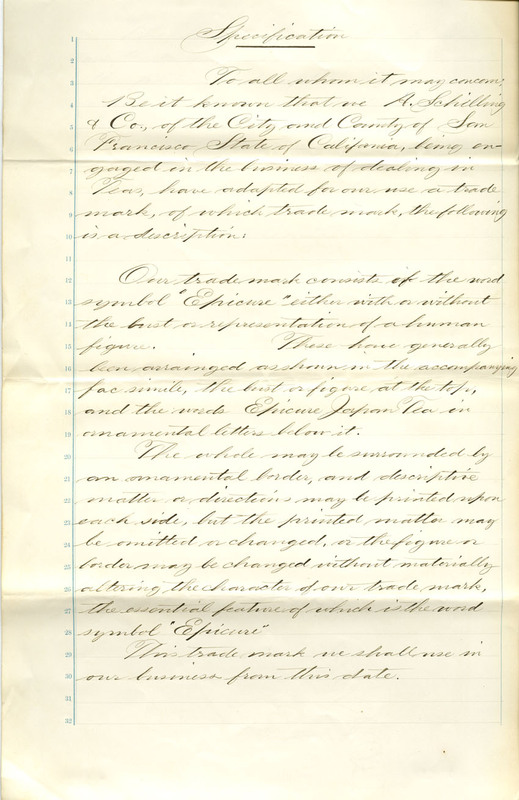 Specification
1
2
3 To all whom it may concern;
4 Be it known that we A. Schilling
5 & Co., of the City and County of San
6 Francisco, State of California, being en-
7 gaged in the business of dealing in
8 Teas, have adapted for our use a trade
9 mark, of which trade mark, the following
10 is a description:
11
12 Our trade mark consists of the word
13 symbol "Epicure" either with or without
14 the bust or representation of a human
15 figure. These have generally
16 been arrainged as shown in the accompanying
17 fac simile, the bust or figure at the top,
18 and the words Epicure Japan Tea in
19 ornamental letters below it.
20 The whole may be surrounded by
21 an ornamental border, and descriptive
22 matter or directions may be printed upon
23 each side, but the printed matter may
24 be omitted or changed, or the figure or
25 border may be changed without materially
26 altering the character of our trade mark,
27 the essential feature of which is the word
28 symbol "Epicure"
29 This trade mark we shall use in
30 our business from this date.
31
32